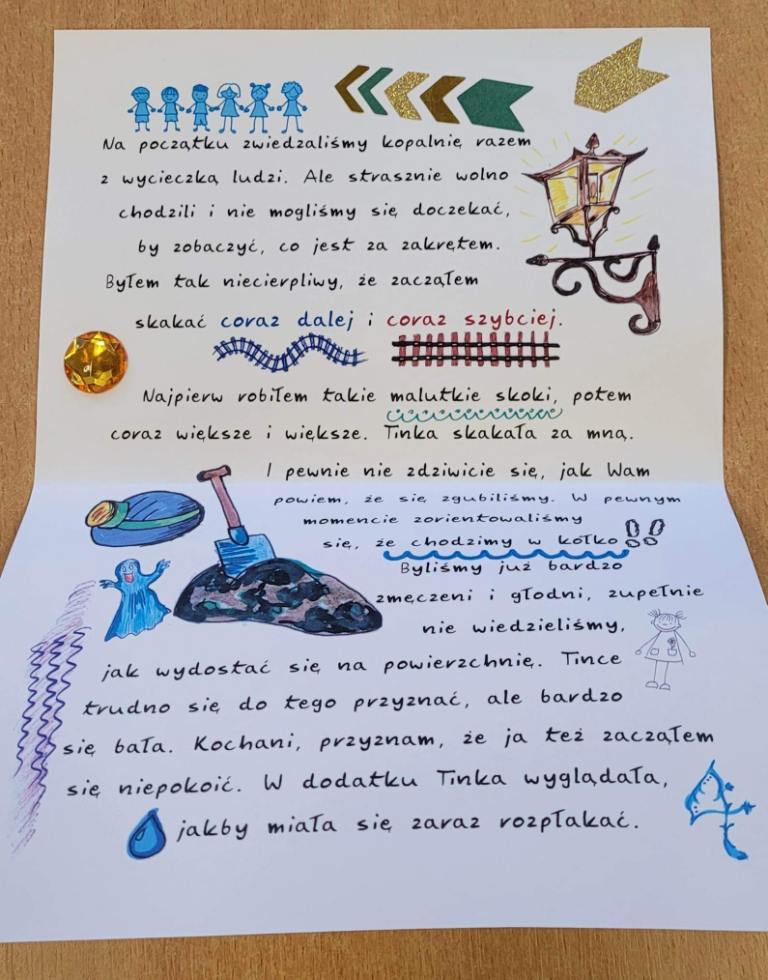 Na początku zwiedzaliśmy kopalnię razem
z wycieczką ludzi. Ale strasznie wolno
chodzili i nie mogliśmy się doczekać,
by zobaczyć, co jest za zakrętem.
Byłem tak niecierpliwy, że zacząłem
skakać coraz dalej i coraz szybciej.
Najpierw robiłem takie malutkie skoki, potem
coraz większe i większe. Tinka skakała za mną.
I pewnie nie zdziwicie się, jak Wam
powiem, że się zgubiliśmy. W pewnym
momencie zorientowaliśmy
się, że chodzimy w kółko
Byliśmy już bardzo
zmęczeni i głodni, zupełnie
nie wiedzieliśmy,
jak wydostać się na powierzchnię. Tince
trudno się do tego przyznać, ale bardzo
się bała. Kochani, przyznam, że ja też zacząłem
się niepokoić. W dodatku Tinka wyglądała,
jakby miała się zaraz rozpłakać.